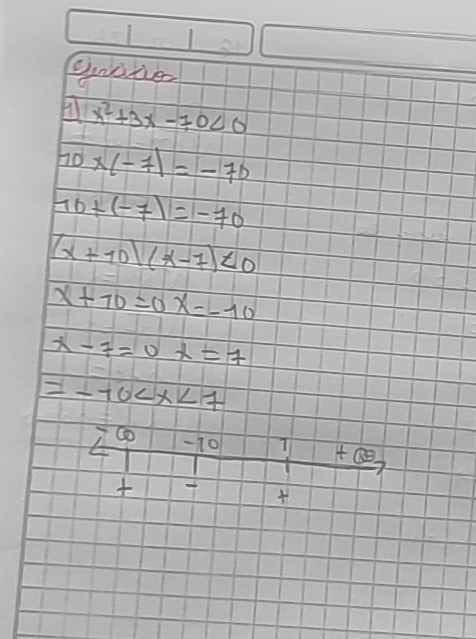 1) x²+3x-70<0
10x(-7)=-70
10+(-7)=-70
(x+10)(x-7)<0
x+10=0 x=-10
x-7=0 x=7
=-10<x<7
-∞ -10 7 +∞
+ - +